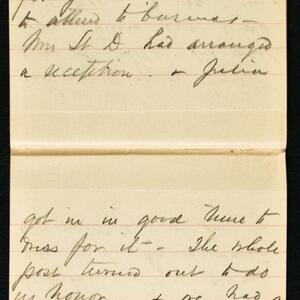 to attend to business -
Mrs St D. had arranged
a reception. & Julia
got in in good time to
dress for it - The whole
post turned out to do
us honor & we had a